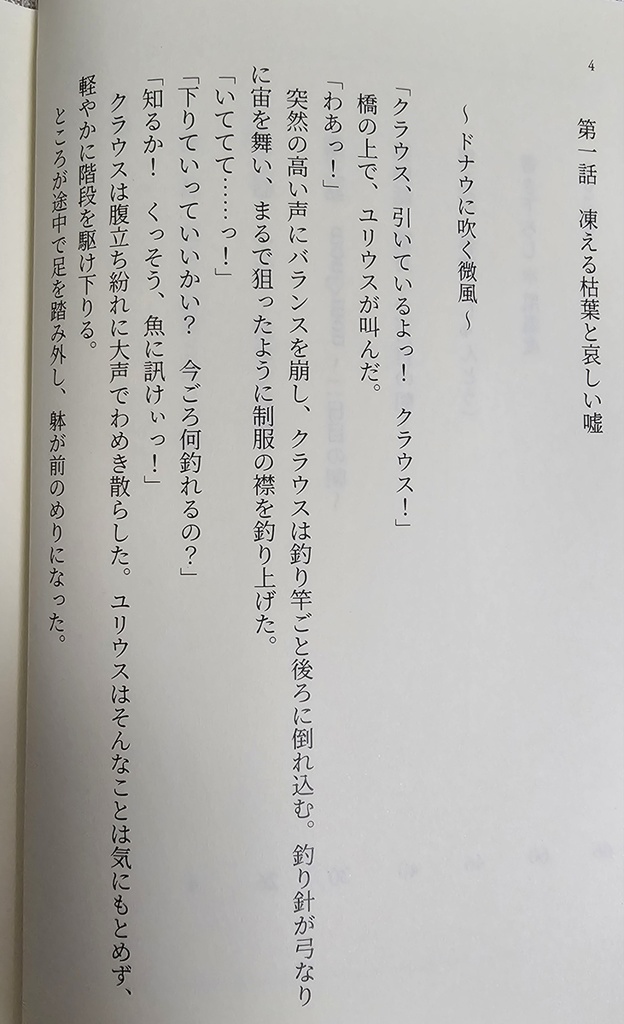 4
第一話　凍える枯葉と哀しい嘘
～ドナウに吹く微風～
「クラウス、引いているよっ！　クラウス！」
橋の上で、ユリウスが叫んだ。
「わあっ！」
突然の高い声にバランスを崩し、クラウスは釣り竿ごと後ろに倒れ込む。釣り針が弓なり
に宙を舞い、まるで狙ったように制服の襟を釣り上げた。
「いててて……っ！」
「下りていっていいかい？　今ごろ何釣れるの？」
「知るか！　くっそう、魚に訊けぃっ！」
クラウスは腹立ち紛れに大声でわめき散らした。ユリウスはそんなことは気にもとめず、
軽やかに階段を駆け下りる。
ところが途中で足を踏み外し、躰が前のめりになった。